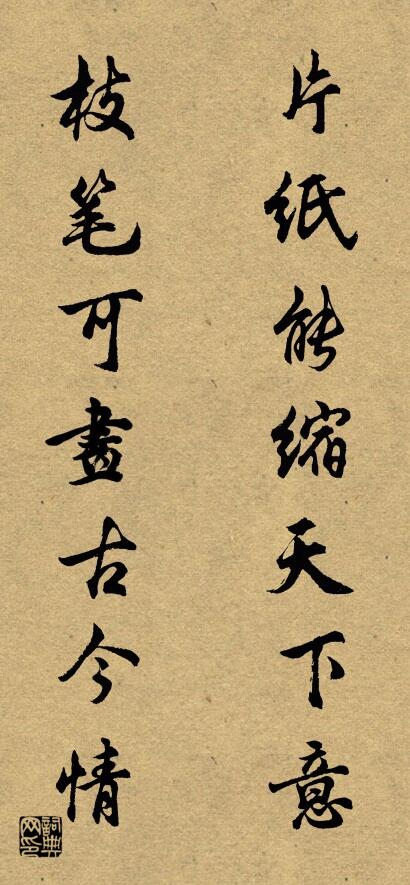 片纸能缩天下意
枝笔可畫古今情
詞典网印